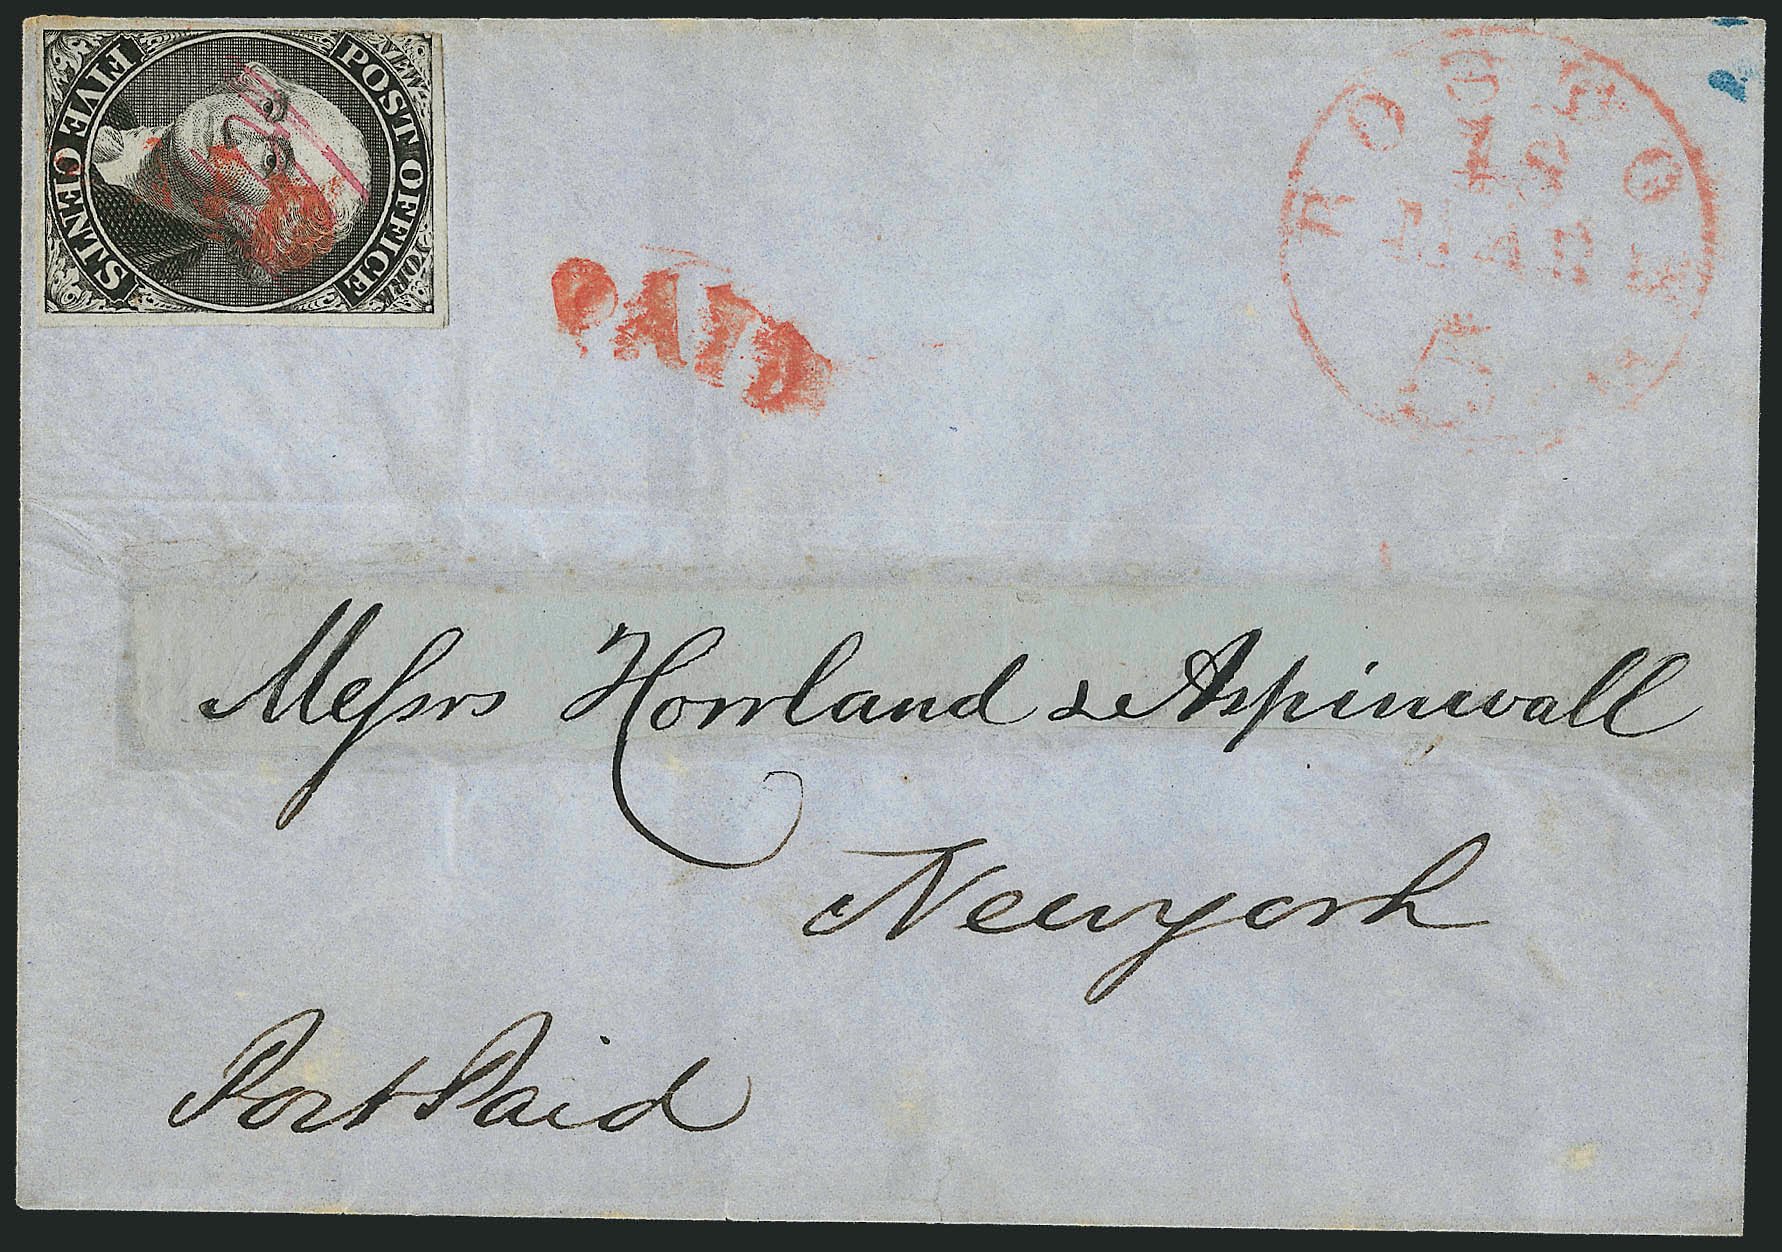 NEW-YORK
POST OFFICE
FIVE CENTS
PAID
MAR
5
Messrs Howland & Aspinwall
Newyork
Post Paid